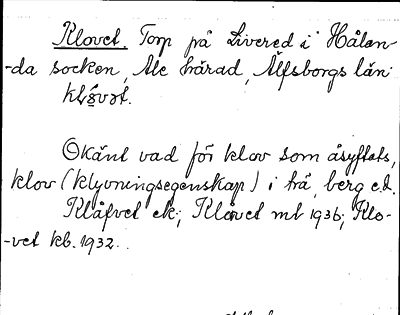 Klovet. Torp på Livered i Hålan-
-da socken, Ale härad, Älfsborgs län
Okänt vad för klov som åsyftats,
klov (klyvningsegenskap) i trä, berg e.d.
Klåfvet ek; Klåvet ml 1936; Klo-
-vet kb. 1932.